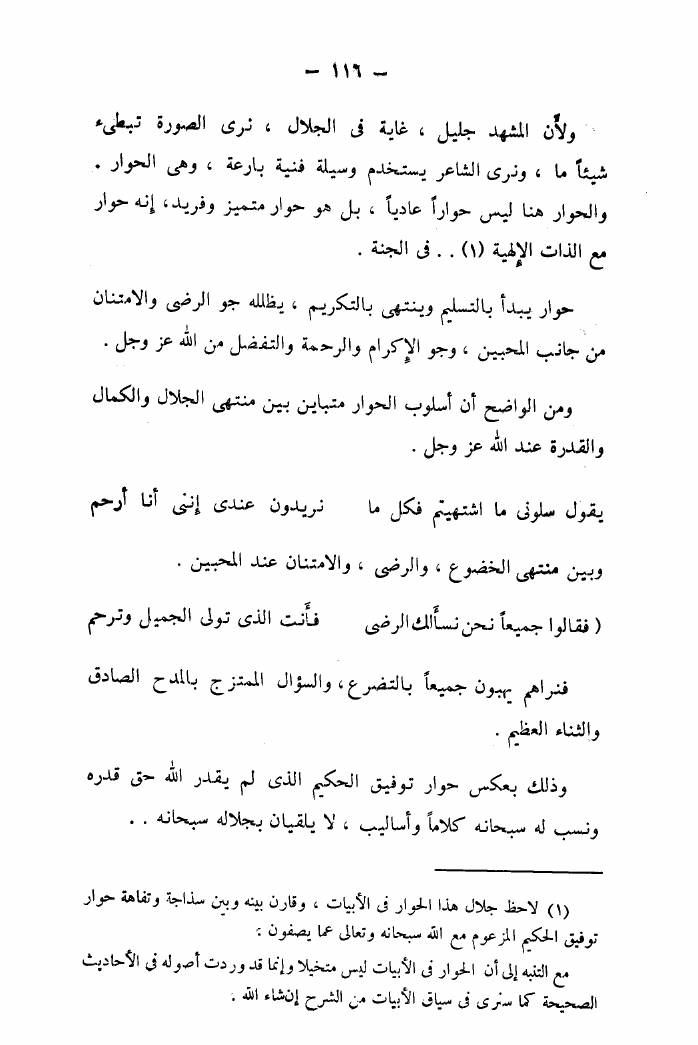 – ١١٦ –
ولأن المشهد جليل ، غاية فى الجلال ، نرى الصورة تبطىء
شيئاً ما ، ونرى الشاعر يستخدم وسيلة فنية بارعة ، وهى الحوار .
والحوار هنا ليس حواراً عادياً ، بل هو حوار متميز وفريد، إنه حوار
مع الذات الإلهية (١) . . فى الجنة .
حوار يبدأ بالتسليم وينتهى بالتكريم ، يظلله جو الرضى والامتنان
من جانب المحبين ، وجو الإكرام والرحمة والتفضل من الله عز وجل .
ومن الواضح أن أسلوب الحوار متباين بين منتهى الجلال والكمال
والقدرة عند الله عز وجل .
يقول سلونى ما اشتهيتم فكل ما نريدون عندى إننى أنا أرحم
وبين منتهى الخضوع ، والرضى ، والامتنان عند المحبين .
( فقالوا جميعاً نحن نسألك الرضى فأنت الذى تولى الجميل وترحم
فنراهم يهبون جميعاً بالتضرع، والسؤال الممتزج بالمدح الصادق
والثناء العظيم .
وذلك بعكس حوار توفيق الحكيم الذى لم يقدر الله حق قدره
ونسب له سبحانه كلاماً وأساليب ، لا يلقيان بجلاله سبحانه . .
(١) لاحظ جلال هذا الحوار فى الأبيات ، وقارن بينه وبين سذاجة وتفاهة حوار
توفيق الحكيم المزعوم مع الله سبحانه وتعالى عما يصفون .
مع التنبه إلى أن الحوار فى الأبيات ليس متخيلا وإنما قد وردت أصوله فى الأحاديث
الصحيحة كما سنرى فى سياق الأبيات من الشرح إن شاء الله .